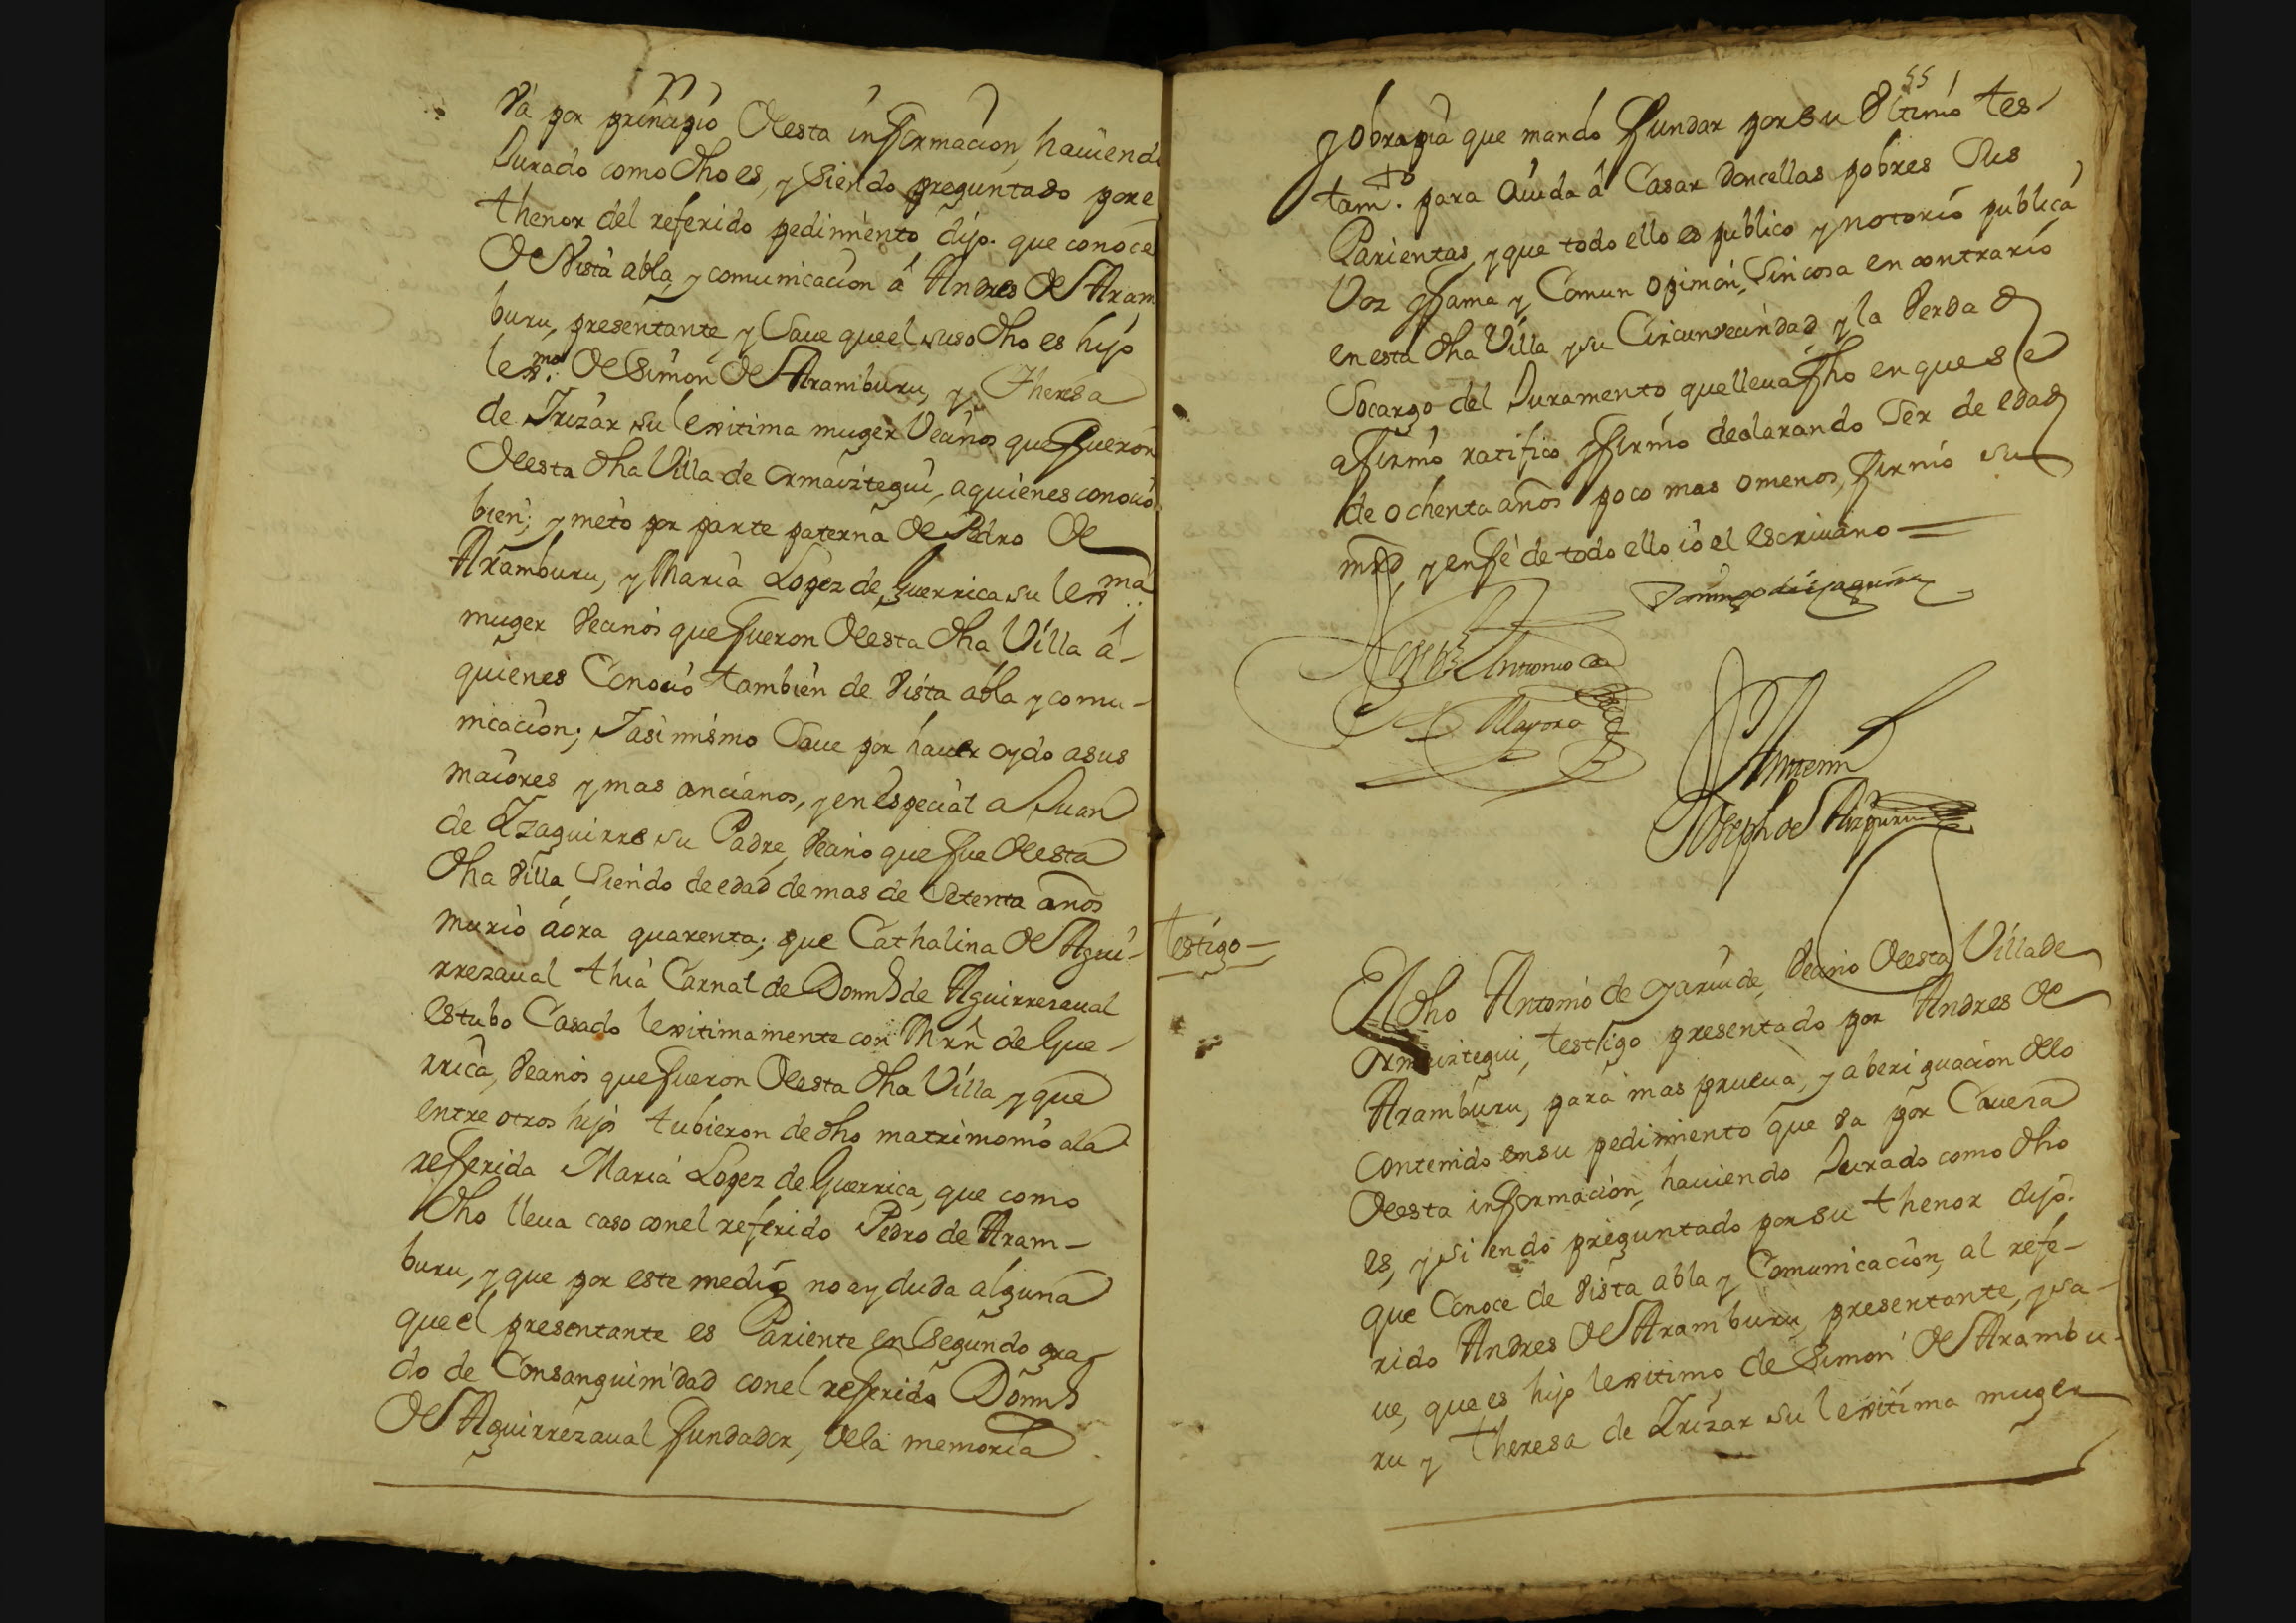 Va por principio desta informacion, hauiendo
Jurado como dho es, y siendo preguntado por el
thenor del referido pedimiento, dijo. que conoce
de vista abla, y comunicacion â Andres de Aram
buru, presentante y Saue que el suso dho es hijo
lexmo. de Simon de Aramburu, y Theresa
de Irizar su lexitima muger Vecinos que fueron
desta dha Villa de ormaiztegui, a quienes conocio
bien; y nieto por parte paterna de Pedro de
Aramburu, y Maria Lopez de Guerrica su lexma.
muger Vecinos que fueron desta dha Villa â-
quienes Conocio tambien de vista abla y comu-
nicacion; Y asi mismo Saue por hauer oydo a sus
maiores y mas ancianos, y en especial a Juan
de Yzaguirre su Padre, Vecino que fue desta
dha Villa, siendo de edad de mas de Setenta años
murio áora quarenta; que Cathalina de Agui-
rrezaual thia Carnal de Domis de Aguirrezaual
estubo Casado lexitimamente con Mrn de Gue-
rrica, Vecinos que fueron desta dha Villa, y que
entre otros hijos tubieron de dho matrimonio ala
referida Maria Lopez de Guerrica, que como
dho lleua caso con el referido Pedro de Aram-
buru, y que por este medio no ay duda alguna
que el presentante es Pariente en Segundo gra-
do de Consanguinidad con el referido Domis
de Aguirrezaual fundador, dela memoria
55
y Obrapia que mandó fundar por su Vltimo tes-
tamto. para áiuda â Casar doncellas pobres Sus
Parientas, y que todo ello es publico y notorio publica
Voz y fama y Comun opinion, Sin cosa en contrario
en esta dha Villa y su Circunvecindad, y la Verdad
Socargo del Juramento que lleua fho en que se
afirmó ratifico y firmo declarando Ser de edad
de ochenta años poco mas o menos, firmó su
mrd, y en fé de todo ello io el escriuano =
Domingo de Yzaguirre
Joseph Antonio de
Mayora
Antemi
Joseph de Aizpuru
testigo -
El dho Antonio de Oyaruide, Vecino desta Villa de
ormaiztegui, testigo presentado por Andres de
Aramburu, para mas prueua, y aberiguacion delo
contenido en su pedimiento que va por Caueza
desta informacion, hauiendo Jurado como dho
es, y siendo preguntado por su thenor dijo.
que Conoce de vista abla y Comunicacion, al refe-
rido Andres de Aramburu, presentante, y sa-
ue, que es hijo lexitimo de Simon de Arambu-
ru y Theresa de Yrizar su lexitima muger